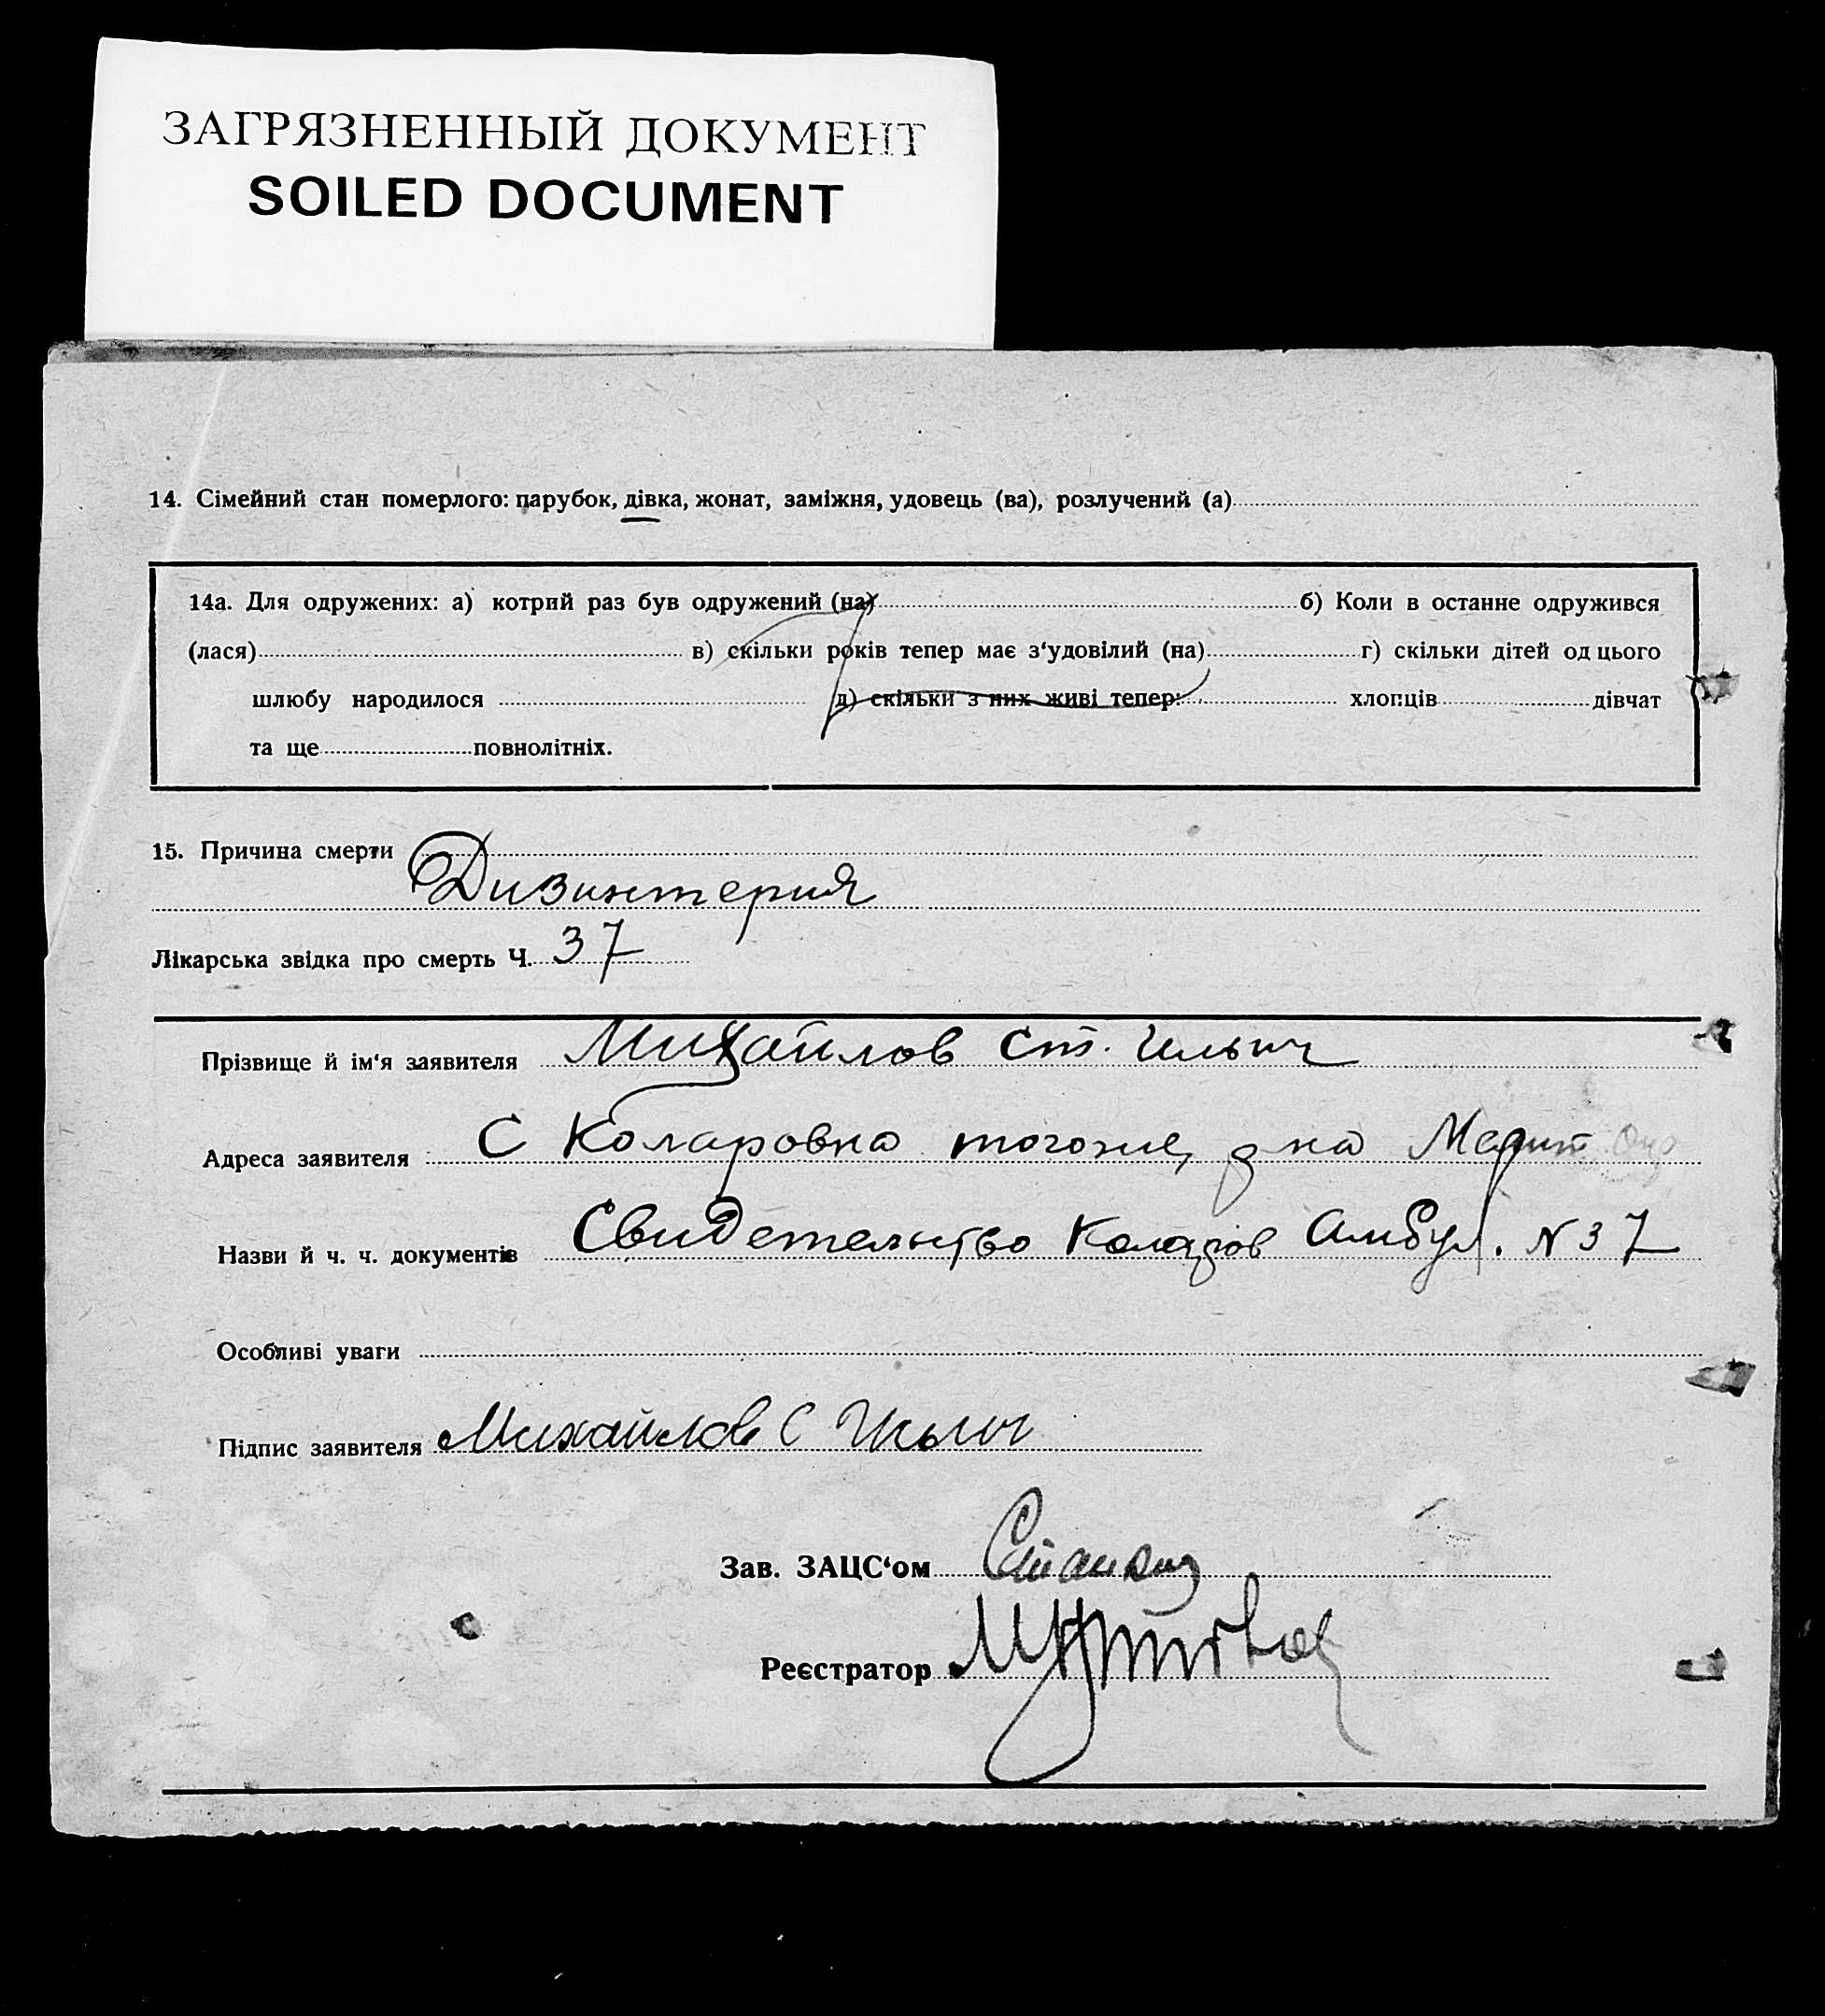 ЗАГРЯЗНЕННЫЙ ДОКУМЕНТ
SOILED DOCUMENT
14. Сімейний стан померлого: парубок, дівка, жонат, заміжня, удовець (ва), розлучений (а)
14а. Для одружених: а) котрий раз був одружений (на) б) Коли в останне одружився
(лася) в) скільки років тепер має з‘удовілий (на) г) скільки дітей од цього
шлюбу народилося д) скільки з них живі тепер: хлопців дівчат
та ще повнолітніх.
15. Причина смерти
Дизинтерия
Лікарська звідка про смерть Ч. 37
Прізвище й ім‘я заявителя Михайлов Ст. Ильич
Адреса заявителя С Коларовка тогоже р на
Назви й ч. ч. документів Свидетельство Коларов Амбул. N 37
Особливі уваги
Підпис заявителя Михайлов С Ильич
Зав. ЗАЦС‘ом
Реєстратор